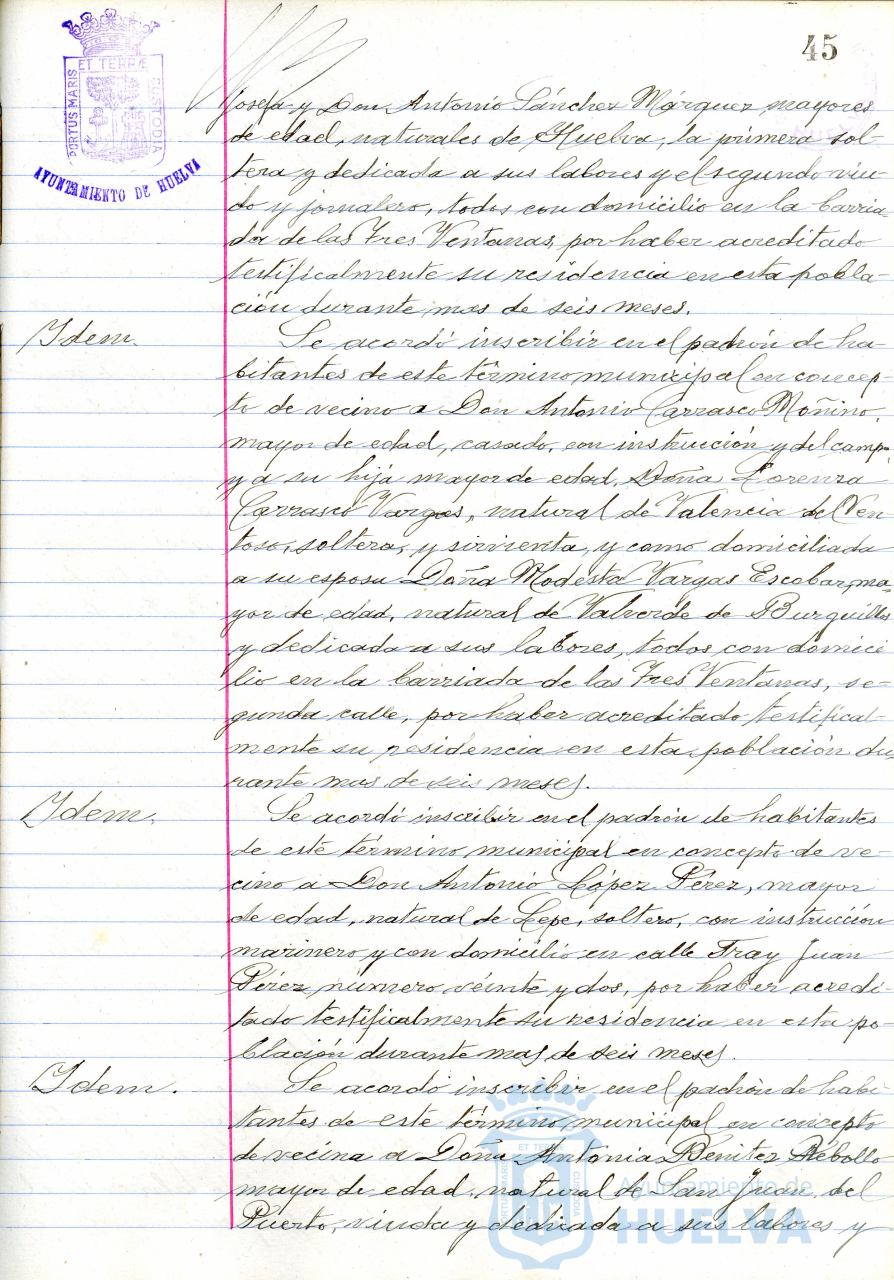 45
ET TERRÆ
PORTUS MARIS
CUSTODIA
AYUNTAMIENTO DE HUELVA
Josefa y Don Antonio Sánchez Márquez, mayores
de edad, naturales de Huelva, la primera sol-
tera y dedicada a sus labores y el segundo viu-
do y jornalero, todos con domicilio en la barria-
da de las Tres Ventanas, por haber acreditado
testificalmente su residencia en esta pobla-
ción durante mas de seis meses.
Idem.
Se acordó inscribir en el padrón de ha-
bitantes de este término municipal en concep-
to de vecino a Don Antonio Carrasco Moñino,
mayor de edad, casado, con instrucción y del campo
y a su hija mayor de edad, Doña Lorenza
Carrasco Vargas, natural de Valencia del Ven
toso, soltera, y sirvienta, y como domiciliada
a su esposa Doña Modesta Vargas Escobar, ma-
yor de edad, natural de Valverde de Burguillos
y dedicada a sus labores, todos con domici
lio en la barriada de las Tres Ventanas, se-
gunda calle, por haber acreditado testifical-
mente su residencia en esta población du
rante mas de seis meses.
Idem.
Se acordó inscribir en el padrón de habitantes
de este término municipal en concepto de ve-
cino a Don Antonio López Pérez, mayor
de edad, natural de Lepe, soltero, con instrucción
marinero y con domicilio en calle Fray Juan
Pérez número veinte y dos, por haber acredi-
tado testificalmente su residencia en esta po-
blación durante mas de seis meses.
Idem.
Se acordó inscribir en el padrón de habi-
tantes de este término municipal en concepto
de vecina a Doña Antonia Benitez Rebollo
mayor de edad, natural de San Juan del
Puerto, viuda y dedicada a sus labores y
ET TERRÆ
PORTUS MARIS
CUSTODIA
Ayuntamiento de
HUELVA